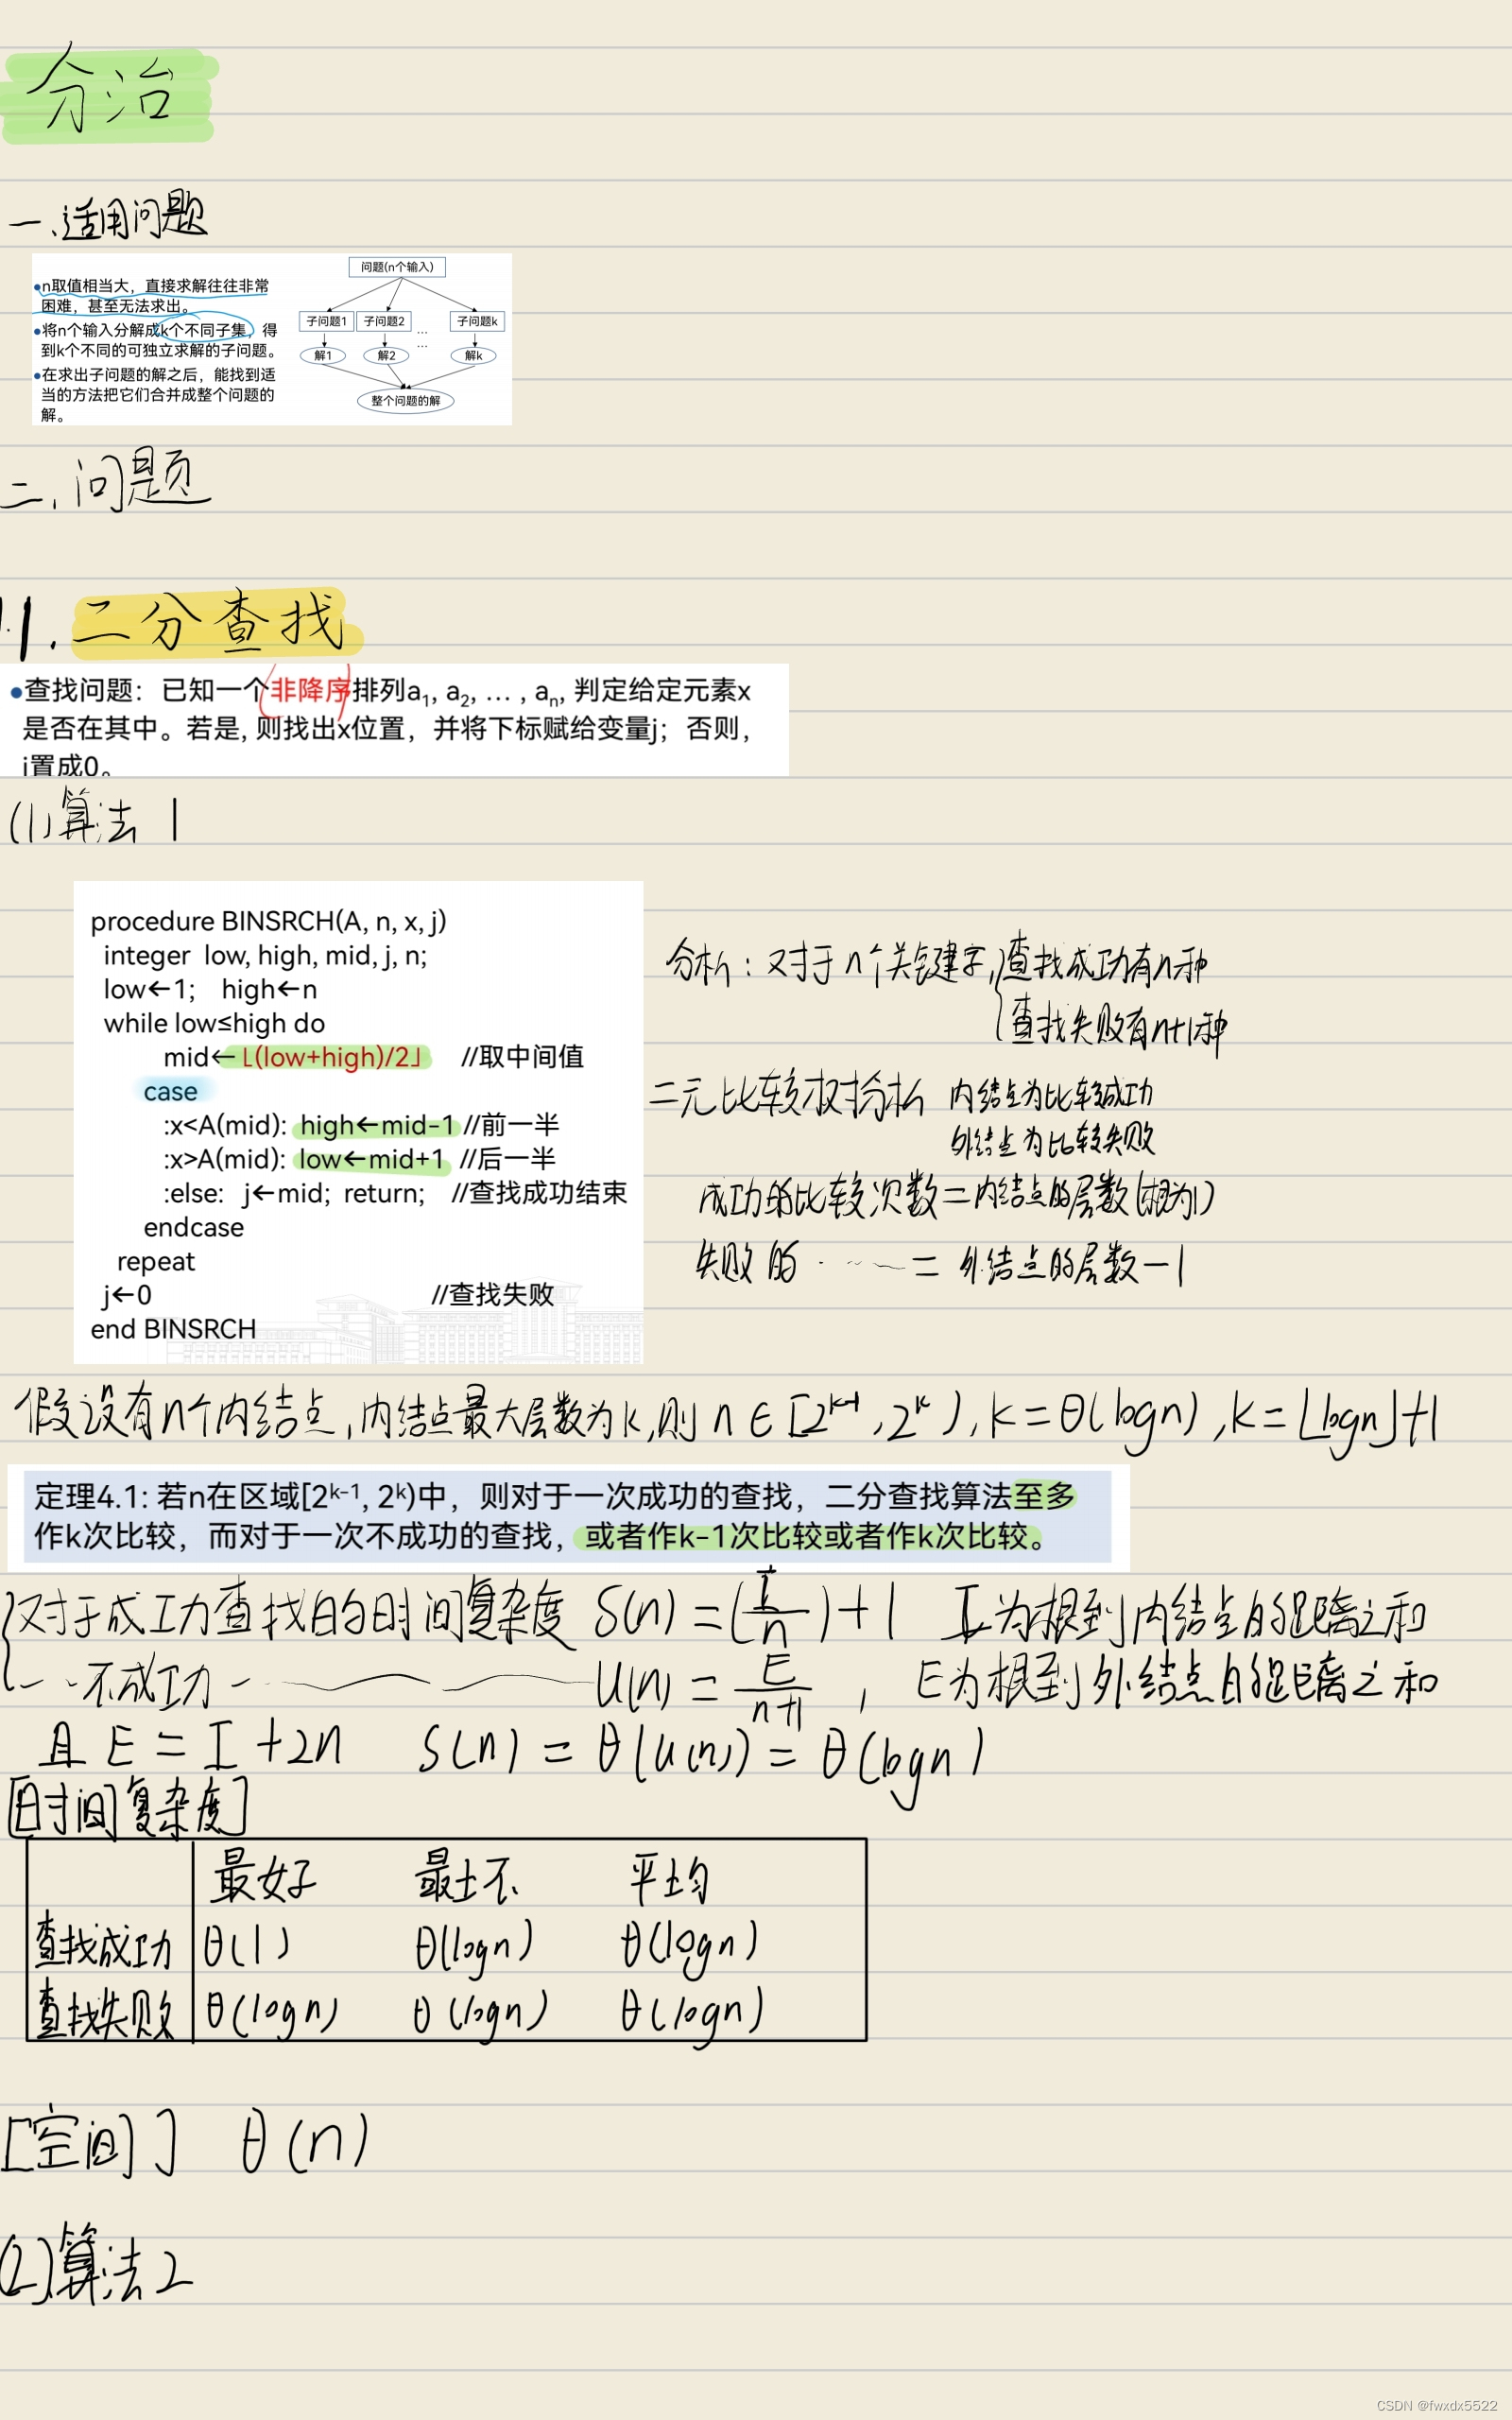 分治
一、适用问题
●n取值相当大，直接求解往往非常
困难，甚至无法求出。
●将n个输入分解成k个不同子集，得
到k个不同的可独立求解的子问题。
●在求出子问题的解之后，能找到适
当的方法把它们合并成整个问题的
解。
问题(n个输入)
子问题1 子问题2 … 子问题k
解1 解2 … 解k
整个问题的解
二、问题
1. 二分查找
●查找问题：已知一个非降序排列a₁, a₂, … , aₙ, 判定给定元素x
是否在其中。若是, 则找出x位置，并将下标赋给变量j；否则，
j置成0。
(1)算法1
procedure BINSRCH(A, n, x, j)
integer low, high, mid, j, n;
low←1; high←n
while low≤high do
mid←⌊(low+high)/2⌋ //取中间值
case
:x<A(mid): high←mid-1 //前一半
:x>A(mid): low←mid+1 //后一半
:else: j←mid; return; //查找成功结束
endcase
repeat
j←0 //查找失败
end BINSRCH
分析：对于n个关键字, {查找成功有n种
查找失败有n+1种
二元比较树分析 内结点为比较成功
外结点为比较失败
成功的比较次数=内结点的层数(根为1)
失败的 ····· = 外结点的层数-1
假设有n个内结点,内结点最大层数为k,则 n∈[2ᵏ⁻¹, 2ᵏ), k=θ(logn), k=⌊logn⌋+1
定理4.1: 若n在区域[2ᵏ⁻¹, 2ᵏ)中，则对于一次成功的查找，二分查找算法至多
作k次比较，而对于一次不成功的查找，或者作k-1次比较或者作k次比较。
{对于成功查找的时间复杂度 S(n)=(I/n)+1 I为根到内结点的距离之和
··不成功 —— U(n)=E/(n+1) , E为根到外结点的距离之和
且 E=I+2n S(n)=θ(U(n))=θ(logn)
[时间复杂度]
最好 最坏 平均
查找成功 θ(1) θ(logn) θ(logn)
查找失败 θ(logn) θ(logn) θ(logn)
[空间] θ(n)
(2)算法2
CSDN @fwxdx5522